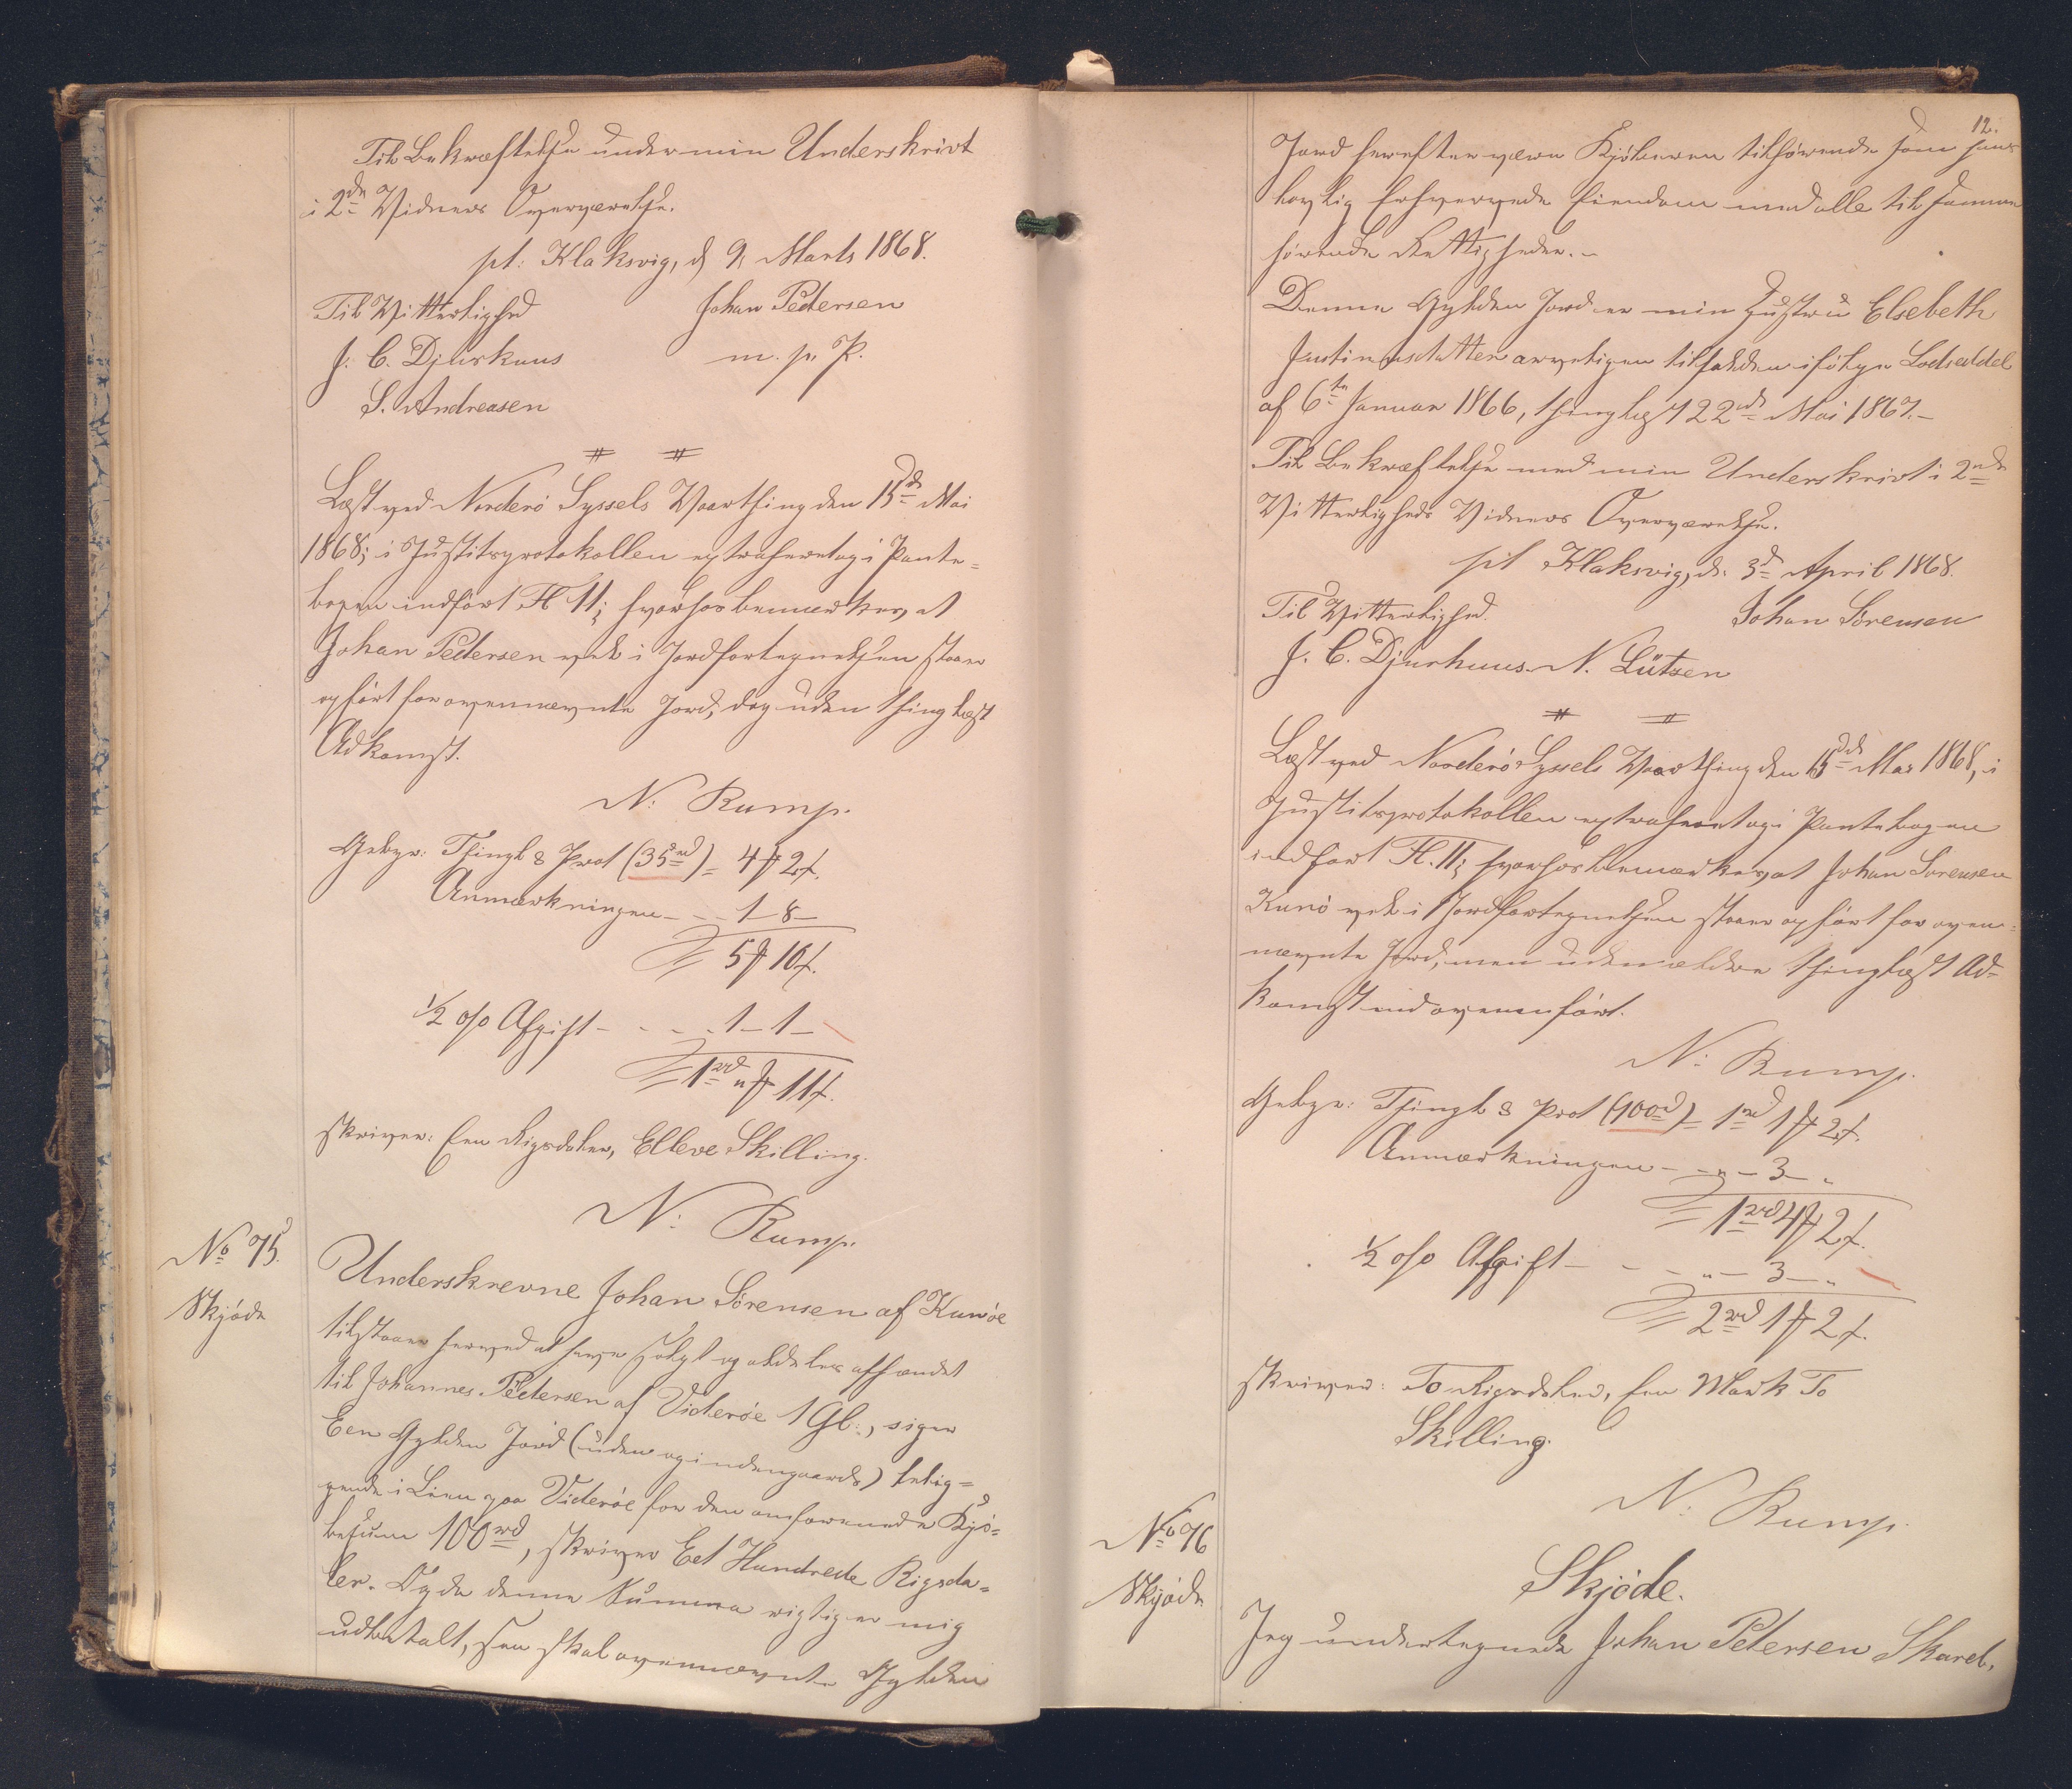 Til Bekræftelse under min Underskrivt
i 2de Vidners Overværelse.
pt: Klaksvig, d 9 Marts 1868.
Til Vitterlighed Johan Pedersen
J. C. Djurhuus m. p. P.
S. Andreasen
Læst ved Norderö Syssels Vaarthing den 15de Mai
1868; i Justitsprotokollen extraheret og i Pante=
bogen indført Fl 11; hvorhos bemærkes, at
Johan Pedersen vel i Jordfortegnelsen staaer
opført for ovennævnte Jord, dog uden thinglæst
Adkomst.
N: Rump.
Gebyr: Thingl & Prot (35rd) = 4 2
Anmærkningen - - 1 - 8 -
5 10
1/2 o/o Afgift - - - - 1 - 1 -
1rd " 11
skriver: Een Rigsdaler, Elleve Skilling.
N: Rump.
No 75.
Skjöde
Underskrevne Johan Sörensen af Kunöe
tilstaaer herved at have solgt og aldeles afhændet
til Johannes Pedersen af Videröe 1 Gl:, siger
Een Gylden Jord (uden og indengaards) belig=
gende i paa Videröe for den omforenede Kjö=
besum 100rd, skriver Eet Hundrede Rigsda=
ler. Og da denne Summa rigtig er mig
udbetalt, saa skal ovennævnte Gylden
12.
Jord herefter være Kjöberen tilhørende som hans
lovlig erhvervede Eiendom med alle til samme
hörende Rettigheder. -
Denne Gylden Jord er min Hustru Elsebeth
Justinusdatter arveligen tilfalden ifölge Lodseddel
af 6te Januar 1866, thinglæst 22de Mai 1867. -
Til Bekræftelse med min Underskrivt i 2de
Vitterligheds Vidners Overværelse.
pt Klaksvig, d. 3d April 1868.
Til Vitterlighed. Johan Sörensen
J. C. Djurhuus. N. Lützen
Læst ved Norderö Syssels Vaarthing den 15de Mai 1868, i
Justitsprotokollen extraheret og i Pantebogen
indført Fl. 11; hvorhos bemærkes, at Johan Sörensen
Kunö vel i Jordfortegnelsen staaer opført for oven=
nævnte Jord, men uden anden thinglæst Ad=
komst end ovenanført.
N: Rump.
Gebyr: Thingl & Prot (100rd) = 1rd 1 2
Anmærkningen - - " - 3 - "
1rd 4 2
1/2 o/o Afgift - - - " - 3 - "
2rd 1 2
skriver: To Rigsdaler, Een Mark To
Skilling.
N: Rump.
No 76
Skjöde
Skjöde.
Jeg undertegnede Johan Petersen Skard,